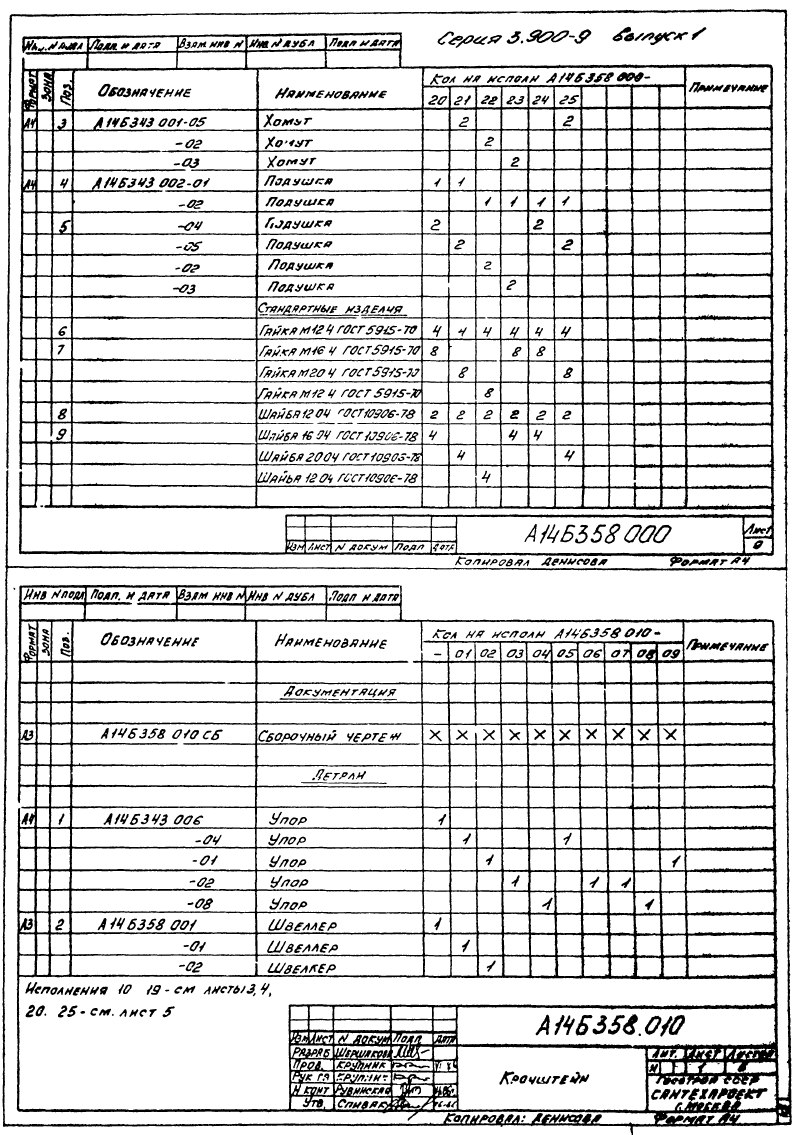 Серия 3.900-9 выпуск 1
Подп. и дата Взам инв N Инв N дубл Подп и дата
Формат Зона Поз. Обозначение Наименование Кол на исполн А14Б358 000- Примечание
20 21 22 23 24 25
А4 3 А14Б343 001-05 Хомут 2 2
-02 Хомут 2
-03 Хомут 2
А4 4 А14Б343 002-01 Подушка 1 1
-02 Подушка 1 1 1 1
5 -04 Подушка 2 2
-05 Подушка 2 2
-02 Подушка 2
-03 Подушка 2
Стандартные изделия
6 Гайка М12 4 ГОСТ 5915-70 4 4 4 4 4 4
7 Гайка М16 4 ГОСТ 5915-70 8 8 8
Гайка М20 4 ГОСТ 5915-70 8 8
Гайка М12 4 ГОСТ 5915-70 8
8 Шайба 12 04 ГОСТ 10906-78 2 2 2 2 2 2
9 Шайба 16 04 ГОСТ 10906-78 4 4 4
Шайба 20 04 ГОСТ 10906-78 4 4
Шайба 12 04 ГОСТ 10906-78 4
А14Б358 000 Лист
Изм Лист N докум Подп Дата
Копировал Денисова Формат А4
Инв N подл Подп. и дата Взам инв N Инв N дубл Подп и дата
Формат Зона Поз. Обозначение Наименование Кол на исполн А14Б358 010- Примечание
- 01 02 03 04 05 06 07 08 09
Документация
А3 А14Б358 010 СБ Сборочный чертеж X X X X X X X X X X
Детали
А4 1 А14Б343 006 Упор 1
-04 Упор 1 1
-01 Упор 1 1
-02 Упор 1 1 1
-08 Упор 1 1
А3 2 А14Б358 001 Швеллер 1
-01 Швеллер 1
-02 Швеллер 1
Исполнения 10 19 - см листы 3,4,
20. 25 - см. лист 5
А14Б358.010
Изм Лист N докум Подп Дата
Разраб Шершакова
Пров. Крупник
Рук гр Крупник
Н конт Рувинская
Утв. Спивак
Кронштейн
Лит. Лист Листов
И 1 6
Госстрой СССР
Сантехпроект
г. Москва
Копировал: Денисова Формат А4